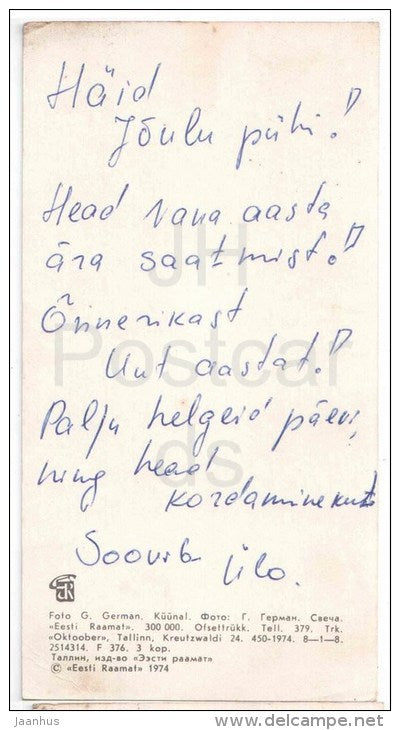 Häid
Jõulu pühi!
Head vana aasta
ära saatmist!
Õnnerikast
Uut aastat!
Palju helgeid päevi,
ning head
kordaminekut
Soovib Ülo.
Foto G. German. Küünal. Фото: Г. Герман. Свеча.
«Eesti Raamat». 300 000. Ofsettrükk. Tell. 379. Trk.
«Oktoober», Tallinn, Kreutzwaldi 24. 450-1974. 8—1—8.
2514314. F 376. 3 kop.
Таллин, изд-во «Ээсти раамат»
© «Eesti Raamat» 1974
JH
Postcar
ds
jaanhus
www.delcampe.net